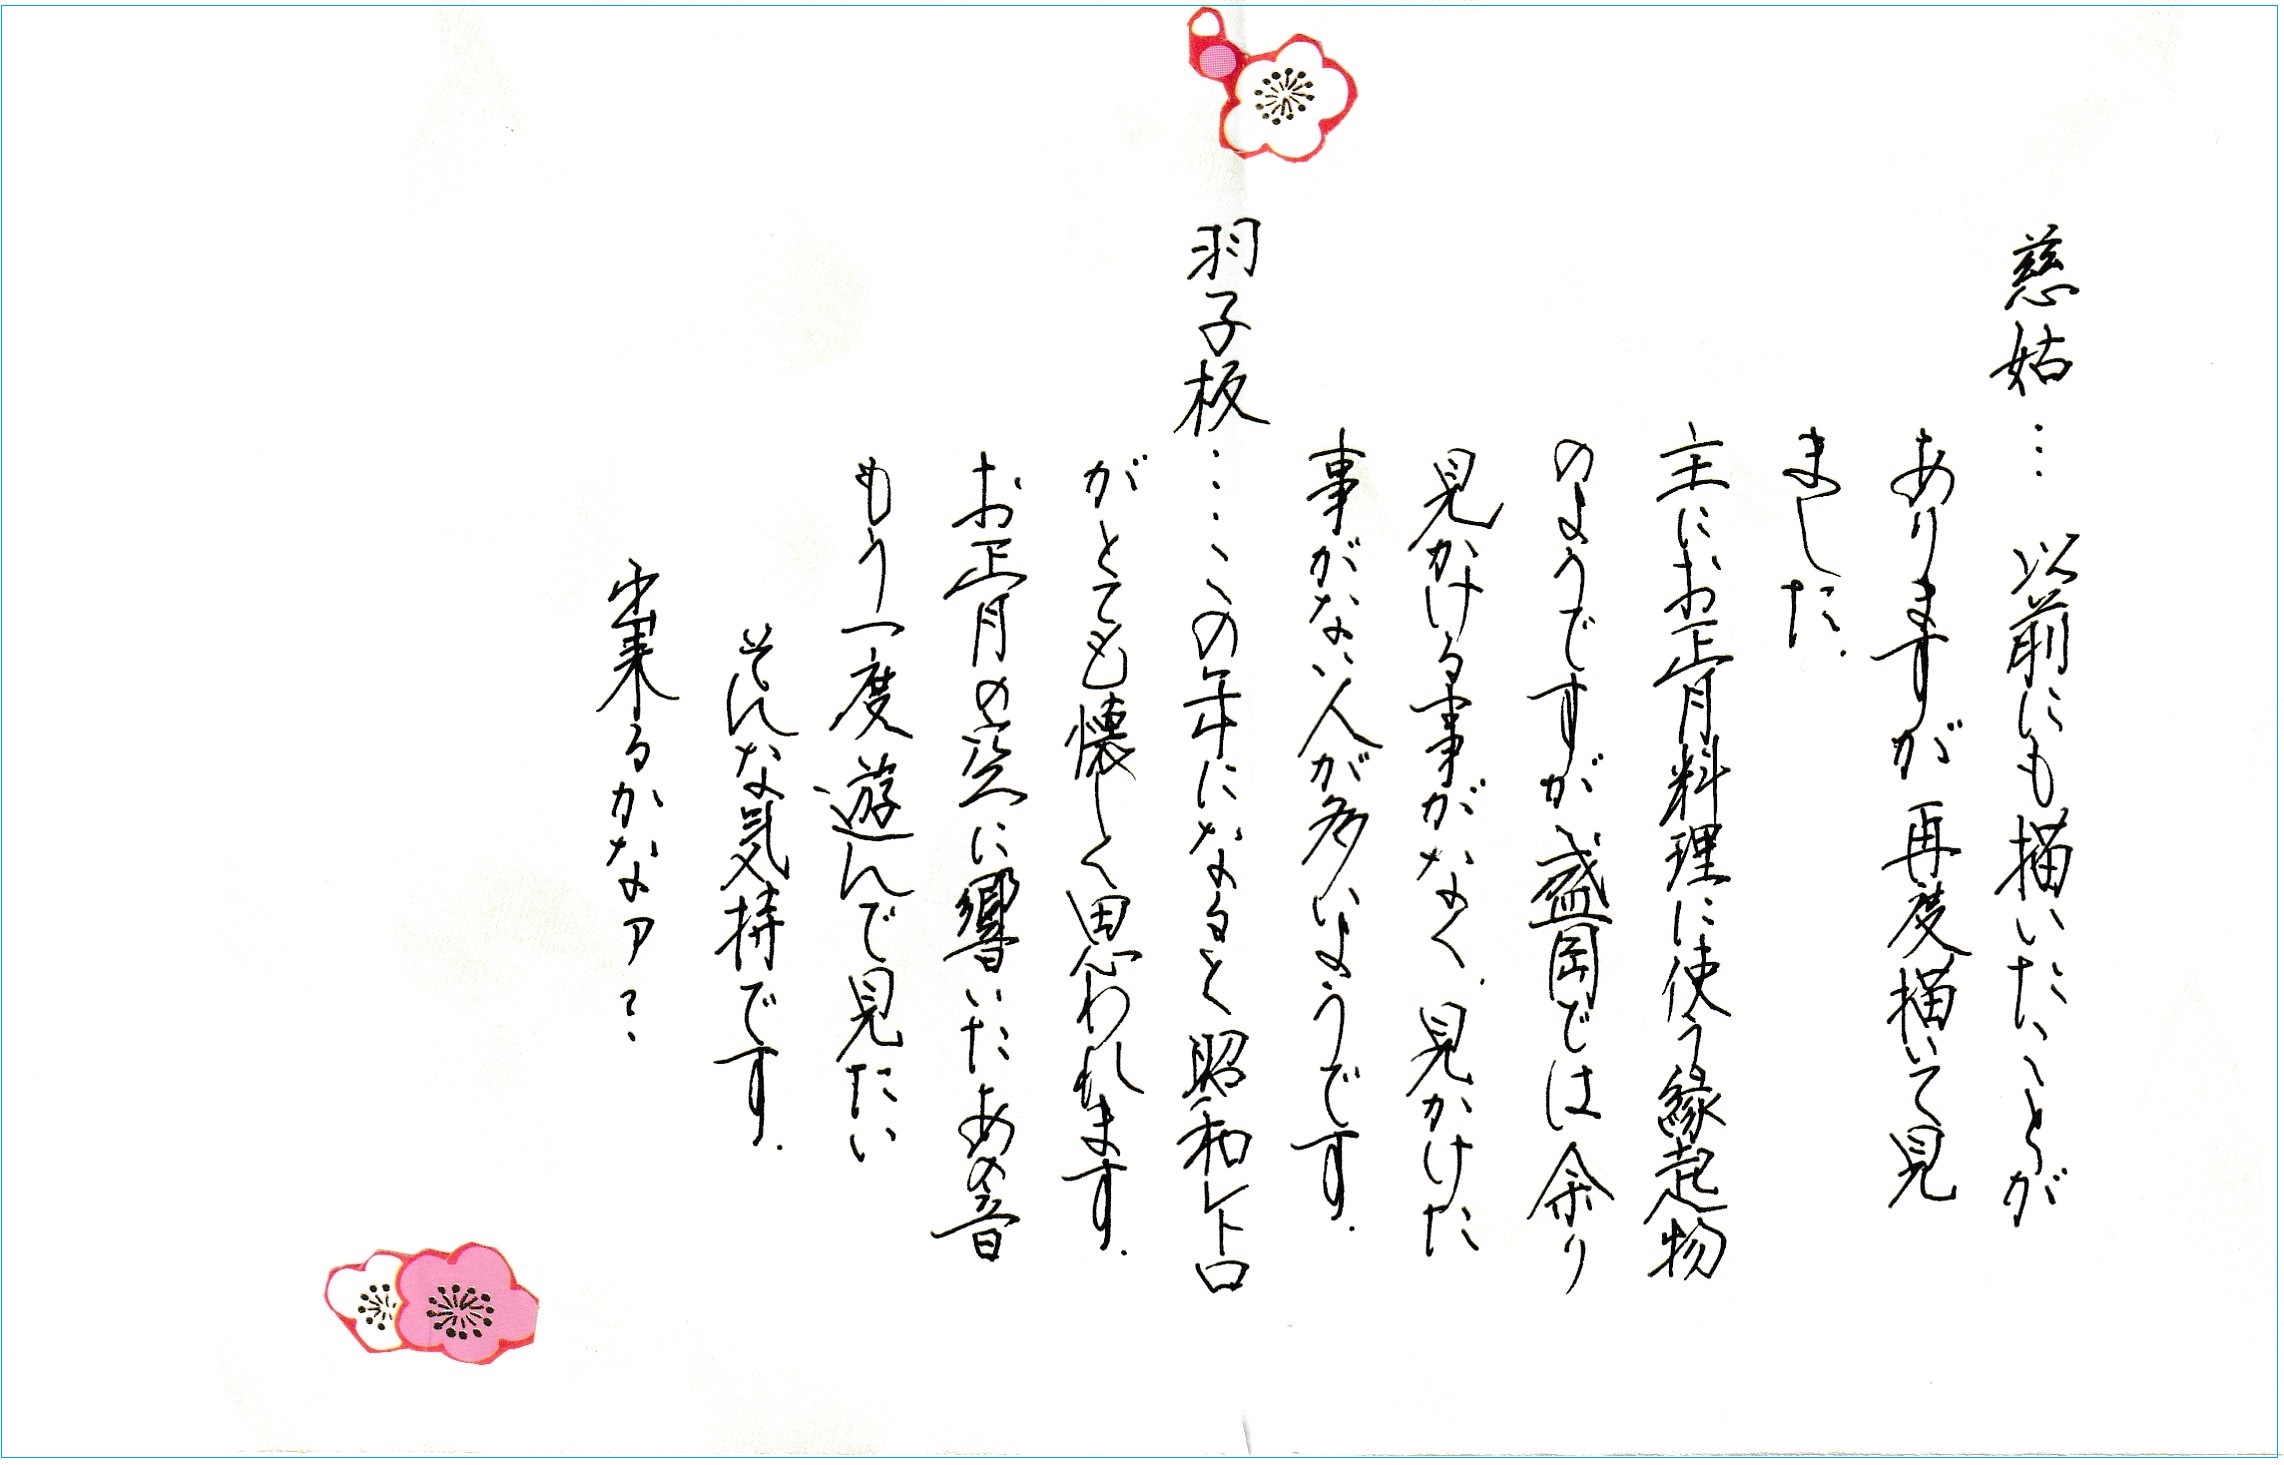 慈姑… 以前にも描いたことが
ありますが再度描いて見
ました.
主にお正月料理に使う縁起物
のようですが盛岡では余り
見かける事がなく.見かけた
事がない人が多いようです.
羽子板……この年になると昭和レトロ
がとても懐しく思われます.
お正月の空に響いたあの音
もう一度遊んで見たい
そんな気持です.
出来るかなァ?